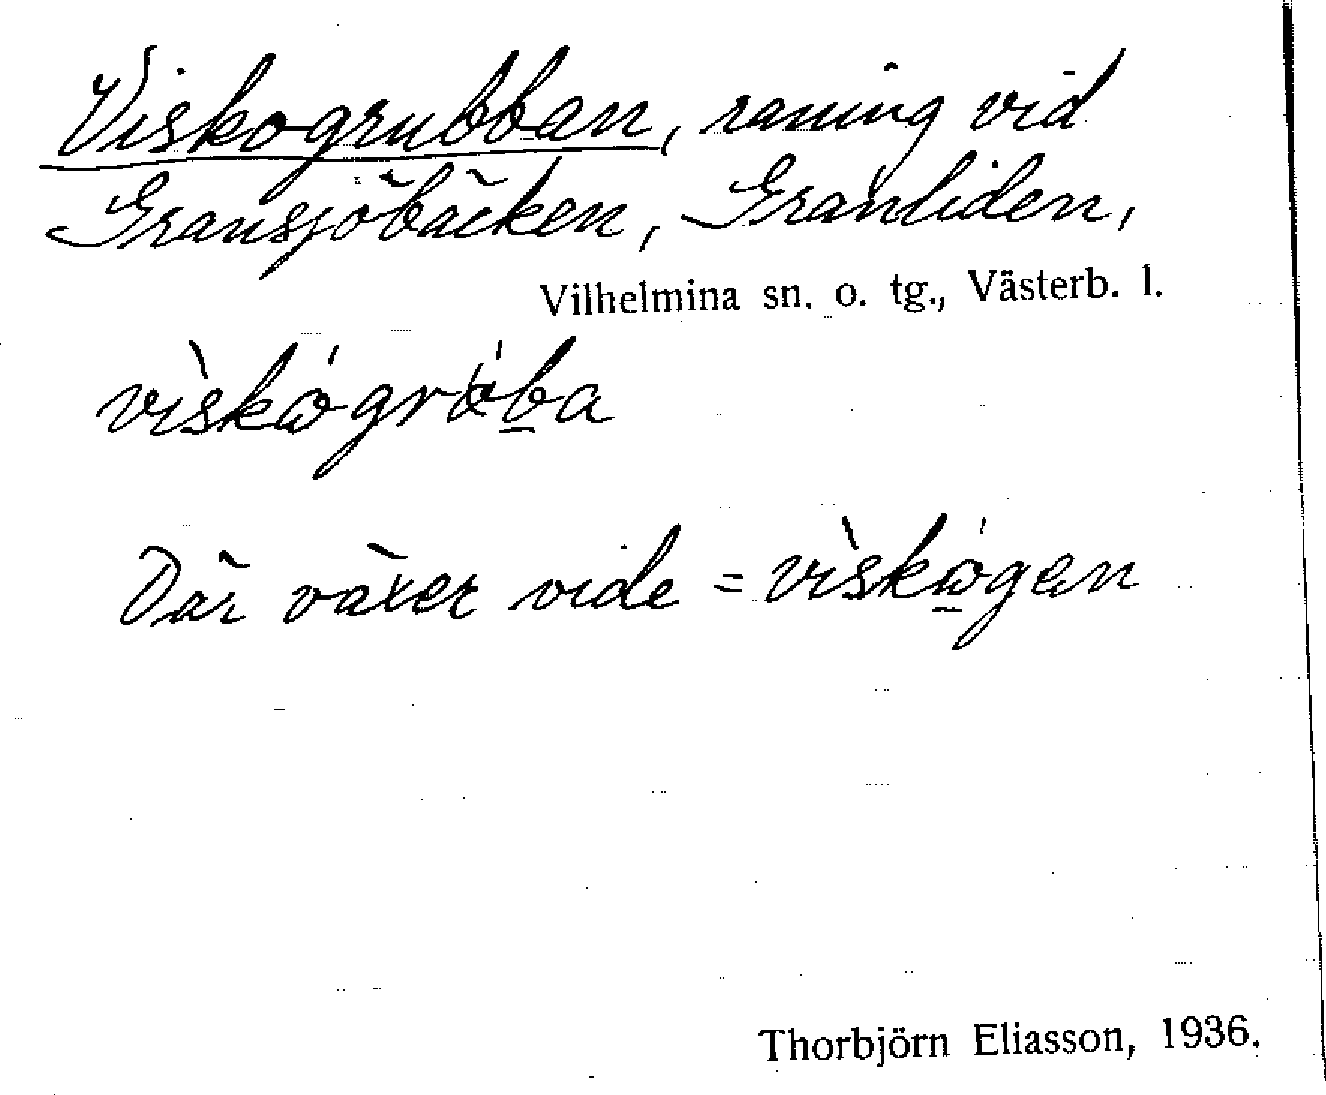 Viskogrubban, raning vid
Gransjöbäcken, Granliden,
Vilhelmina sn. o. tg., Västerb. l.
vìskωgrʉba
Där växer vide = vìskωgen
Thorbjörn Eliasson, 1936.